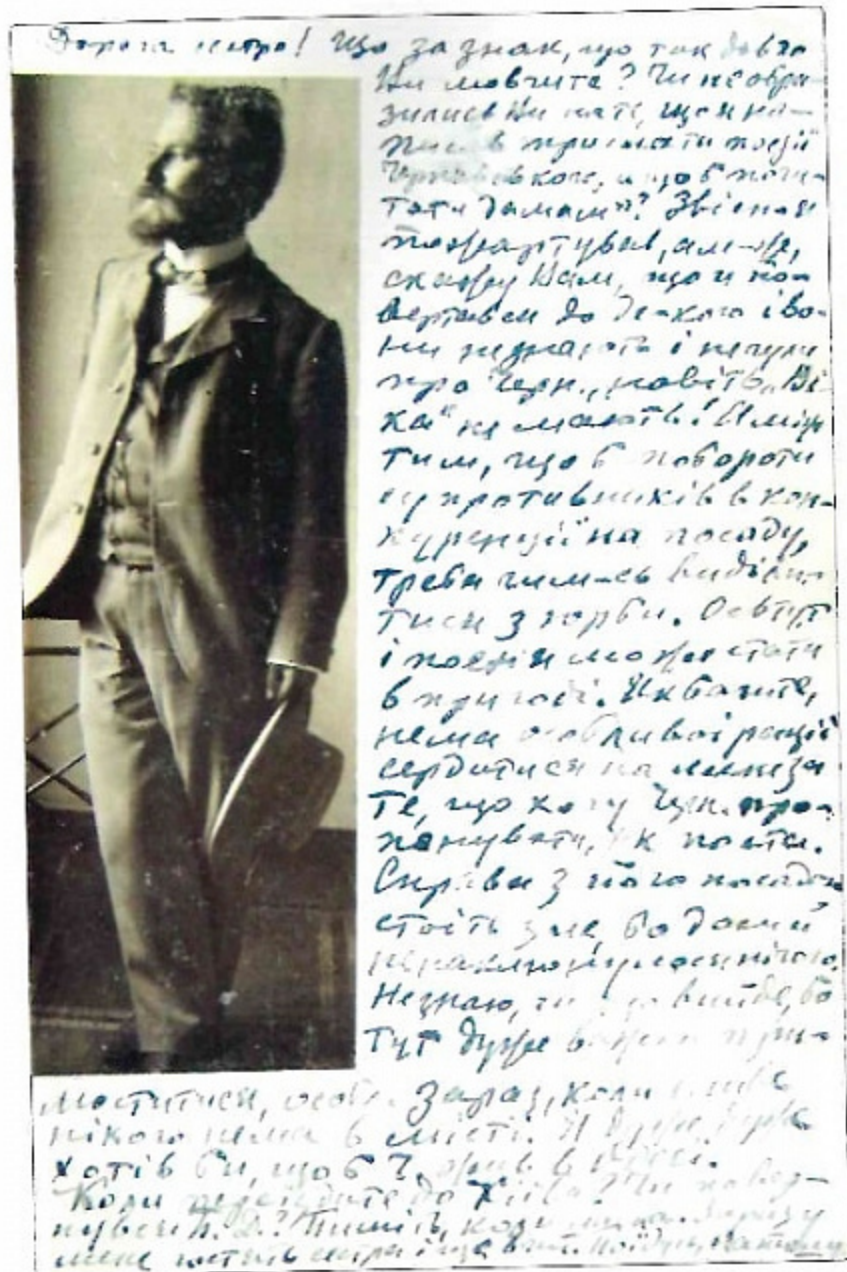 Дорога сестро! Що за знак, що так довго
Ви мовчите? Чи не обра-
зились Ви на те, що я на-
писав прислати поезії
Чернявського, щоб почи-
тати дамам? Звісно я
пожартував, але-ж,
скажу Вам, що я зво-
вертався до де-кого і во-
ни не знають і не чули
про Черн., навіть "Ві-
ка" не мають! А між
тим, щоб побороти
супротивників в кон-
куренції на посаду,
треба чимсь виділи-
тися з юрби. От тут
і поезія може стати
в пригоді. Як бачите,
нема особливої рації
сердитися на мене за
те, що хочу Чрн. про-
понувати, як поета.
Справа з його посадою
стоїть зле, бо досі й
не наклюнулося нічого.
Не знаю, чи що вийде, бо
тут дуже важко при-
моститися, особл. зараз, коли
нікого нема в місті. Я дуже, дуже
хотів би, щоб Ч. жив в
Коли переїдете до Київа? Чи повер-
нувся Л. Д.? Пишіть, коли
мене гостить сестра і ще